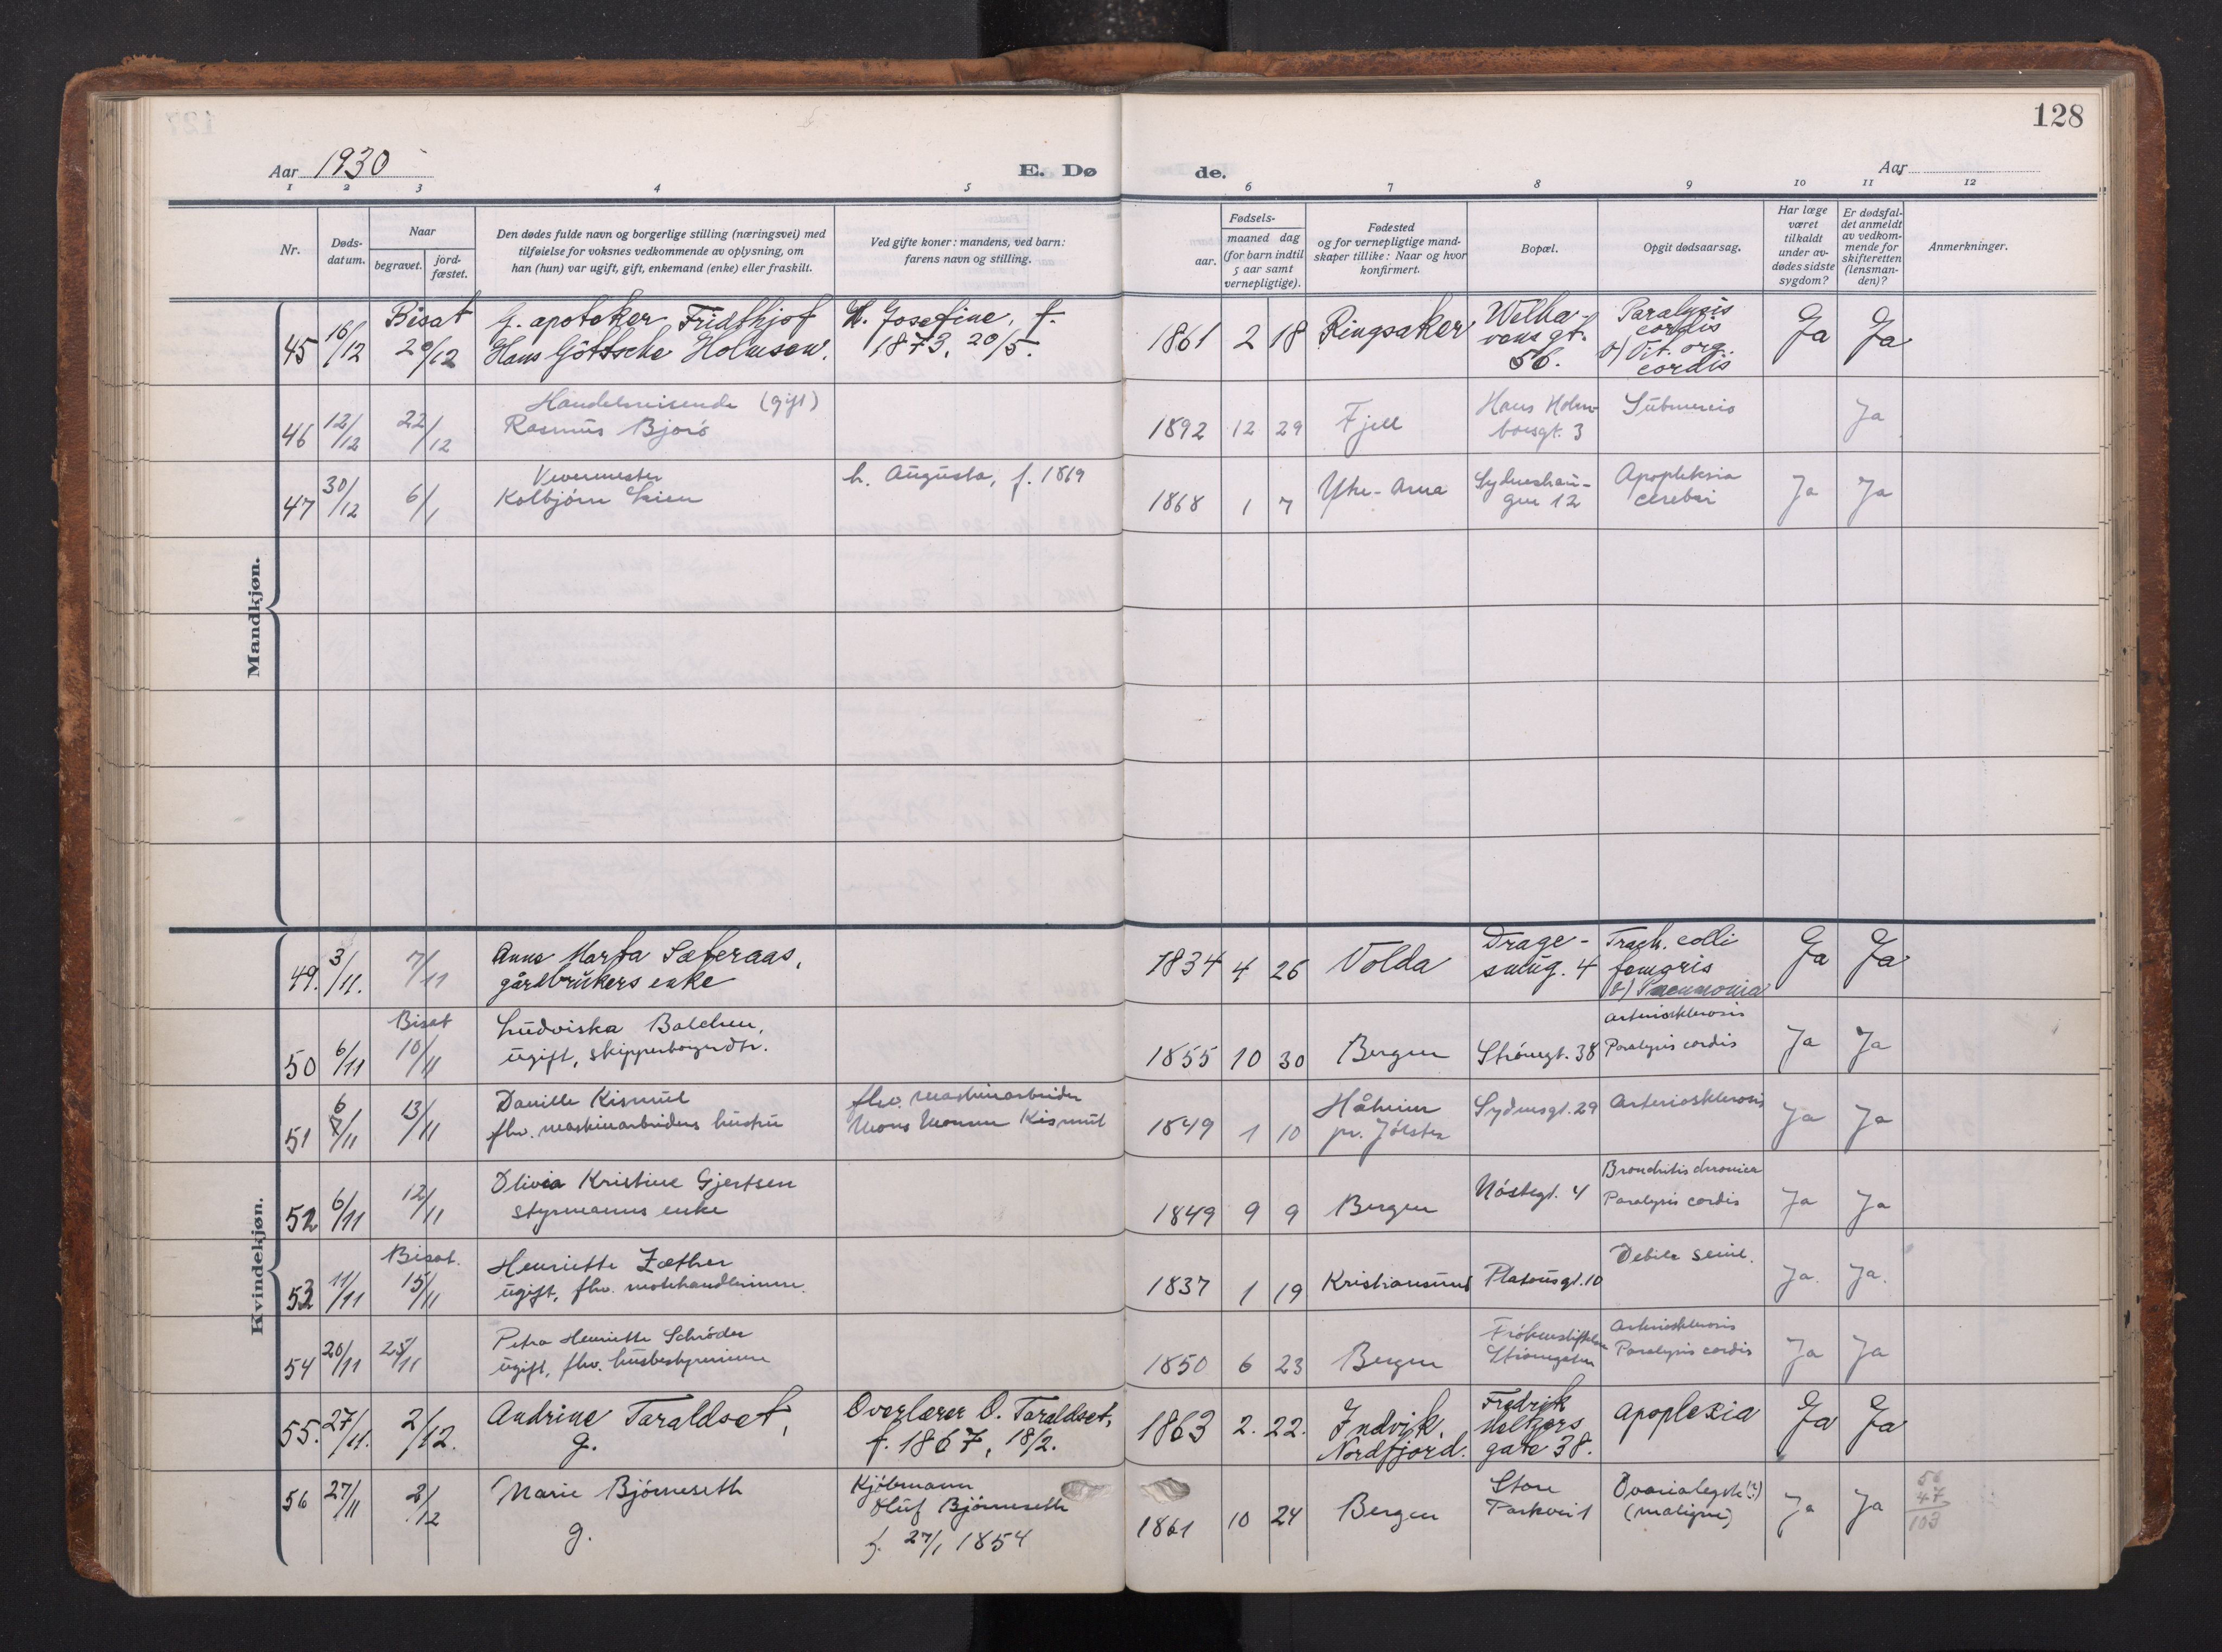 128
Aar 1930
E. Dø
de.
Aar
1 2 3 4 5 6 7 8 9 10 11 12
Nr.
Døds-
datum.
Naar
begravet.
jord-
fæstet.
Den dødes fulde navn og borgerlige stilling (næringsvei) med
tilføielse for voksnes vedkommende av oplysning, om
han (hun) var ugift, gift, enkemand (enke) eller fraskilt.
Ved gifte koner: mandens, ved barn:
farens navn og stilling.
Fødsels-
aar.
maaned dag
(for barn indtil
5 aar samt
vernepligtige).
Fødested
og for vernepligtige mand-
skaper tillike: Naar og hvor
konfirmert.
Bopæl.
Opgit dødsaarsag.
Har læge
været
tilkaldt
under av-
dødes sidste
sygdom?
Er dødsfal-
det anmeldt
av vedkom-
mende for
skifteretten
(lensman-
den)?
Anmerkninger.
Mandkjøn.
45 16/12 Bisat 20/12
G. apoteker Fridthjof
Hans Göttsche Holmsen.
H. Josefine, f.
1873, 20/5.
1861 2 18 Ringsaker
Welha-
vens gt.
56.
Paralysis
cordis
b) Vit. org.
cordis
Ja Ja
46 12/12 22/12
Handelsreisende (gift)
Rasmus Bjorö
1892 12 29 Fjell
Hans Holm-
boesgt. 3
Submersio
Ja
47 30/12 6/1
Vevermester
Kolbjörn Leien
h. Augusta, f. 1869
1868 1 7 Ytre-Arna
Sydneshau-
gen 12
Apopleksia
cerebri
Ja Ja
Kvindekjøn.
49. 3/11. 7/11
Anna Marta Sæteraas,
gårdbrukers enke
1834 4 26 Volda
Drage-
smug. 4
Frach. colli
femoris
b) Pneumonia
Ja Ja
50 6/11 Bisat 10/11
Ludviska Balchen,
ugift, skipperborgerdtr.
1855 10 30 Bergen Strömgt. 38
Arteriosklerosis
Paralysis cordis
Ja Ja
51 6/11 13/11
Danille Kismul
fhv. maskinarbeiders hustru
fhv. maskinarbeider
Mons Monsen Kismul
1849 1 10
Håheim
pr. Jölster
Sydnesgt. 29 Arteriosklerosis
Ja Ja
52 6/11 12/11
Olivia Kristine Gjertsen
styrmanns enke
1849 9 9 Bergen Nöstegt. 4
Bronchitis chronica
Paralysis cordis
Ja Ja
53 11/11 Bisat. 15/11
Henriette Zæther
ugift, fhv. motehandlerinne.
1837 1 19 Kristiansund Platousgt. 10
Debilit. senil.
Ja. Ja.
54 20/11 25/11
Petra Henriette Schröder
ugift, fhv. husbestyrerinne
1850 6 23 Bergen
Frökenstiftelsen
Strömgaten
Arteriosklerosis
Paralysis cordis
Ja Ja
55. 27/11. 2/12.
Andrine Taraldset,
g.
Overlærer O. Taraldset,
f. 1867, 18/2.
1863 2. 22.
Indvik,
Nordfjord.
Fredrik
Meltzers
gate 38.
apoplexia
Ja Ja
56 27/11 3/12
Marie Björneseth
g.
Kjöbmann
Oluf Björneseth
f. 27/1 1854
1861 10 24 Bergen
Store
Parkvei 1
Ovarialcyste (?)
(malign)
Ja Ja
56
47
103